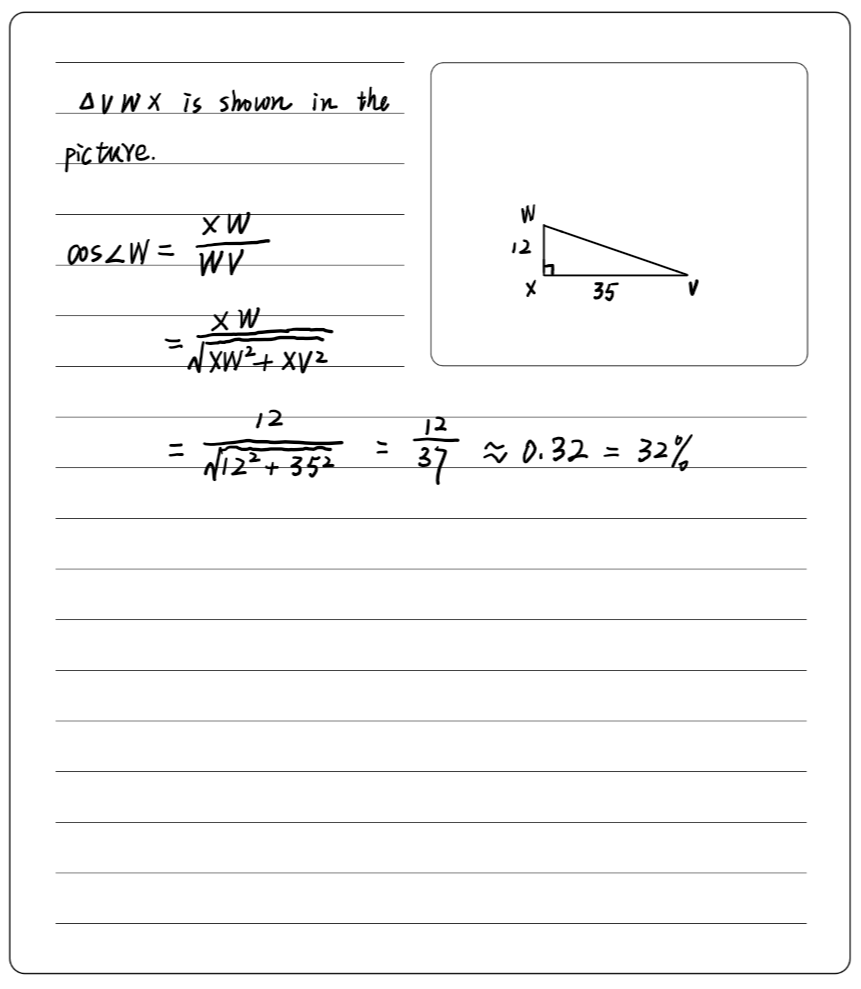 ΔVWX is shown in the
picture.
cos∠W = XW / WV
= XW / √(XW² + XV²)
= 12 / √(12² + 35²) = 12 / 37 ≈ 0.32 = 32%
W
12
X
35
V